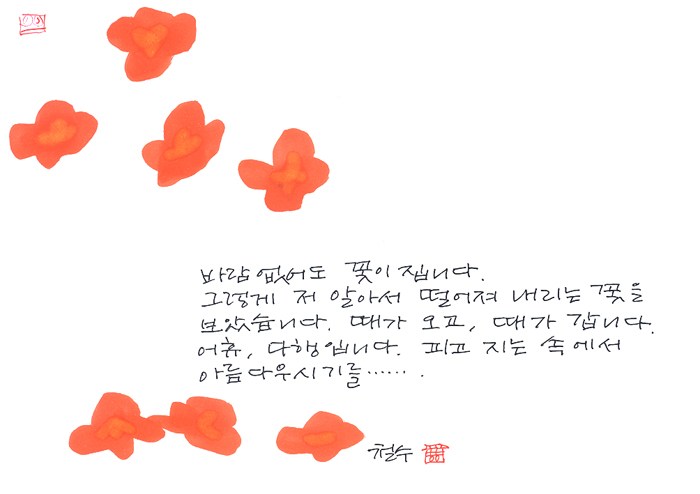 바람 없어도 꽃이 집니다.
그렇게 저 알아서 떨어져 내리는 꽃을
보았습니다. 때가 오고, 때가 갑니다.
어휴, 다행입니다. 피고 지는 속에서
아름다우시기를…….
철수